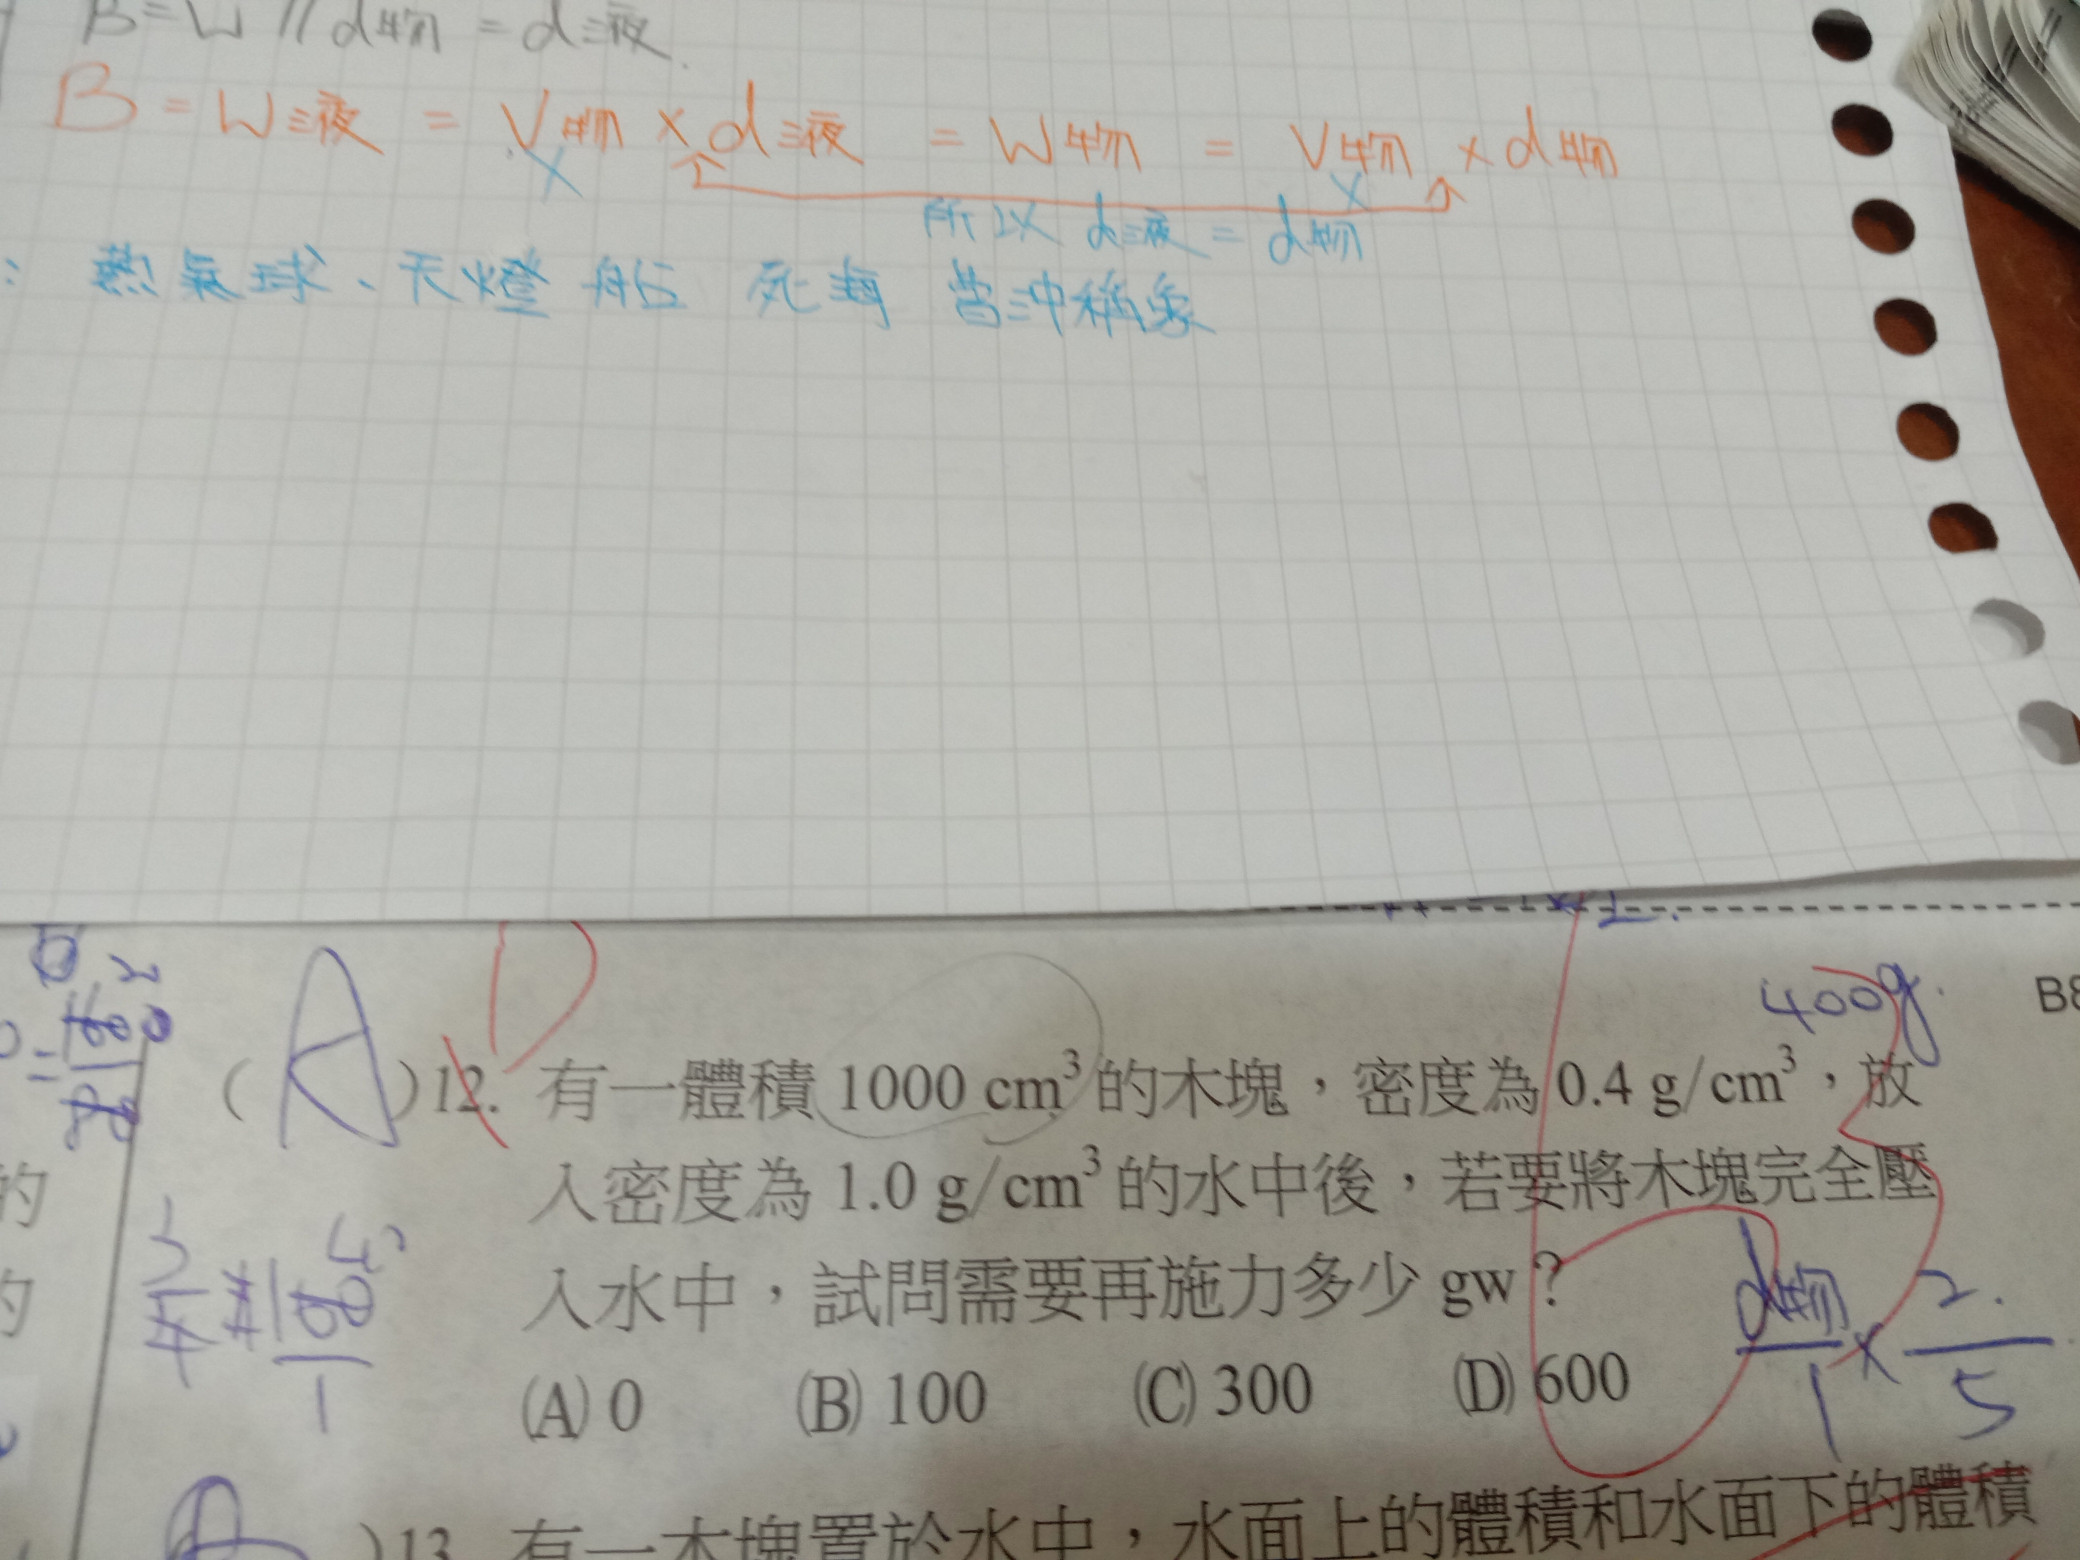 B=W // d物 = d液
B = W液 = V物 × d液 = W物 = V物 × d物
所以 d液 = d物
: 熱氣球、天燈 船 死海 曹沖稱象
400g.
B8
(A)12. 有一體積 1000 cm³ 的木塊，密度為 0.4 g/cm³，放
D
入密度為 1.0 g/cm³ 的水中後，若要將木塊完全壓
入水中，試問需要再施力多少 gw？
d物/1 × 2/5
(A) 0 (B) 100 (C) 300 (D) 600
)13. 有一木塊置於水中，水面上的體積和水面下的體積
的
的